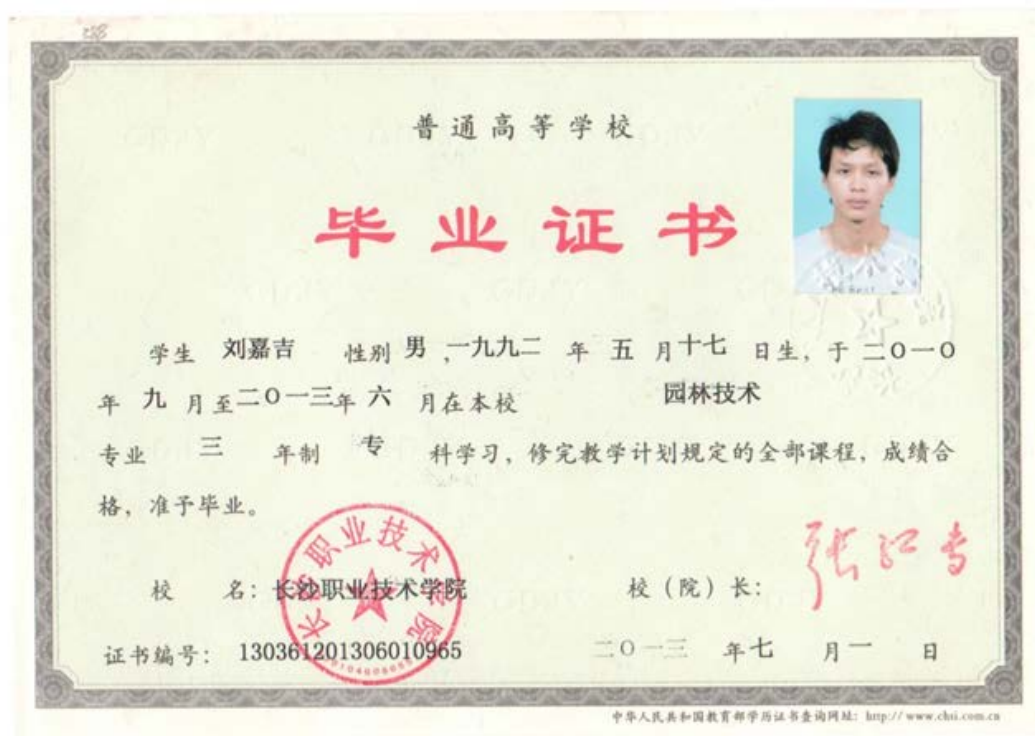 普通高等学校
毕业证书
学生 刘嘉吉 性别 男 ,一九九二 年 五 月十七 日生,于 二〇一〇
年 九 月至二〇一三年 六 月在本校 园林技术
专业 三 年制 专 科学习,修完教学计划规定的全部课程,成绩合
格,准予毕业。
校 名:长沙职业技术学院 校(院)长:
长沙职业技术学院
证书编号: 130361201306010965 二〇一三 年七 月一 日
中华人民共和国教育部学历证书查询网址: http://www.chsi.com.cn